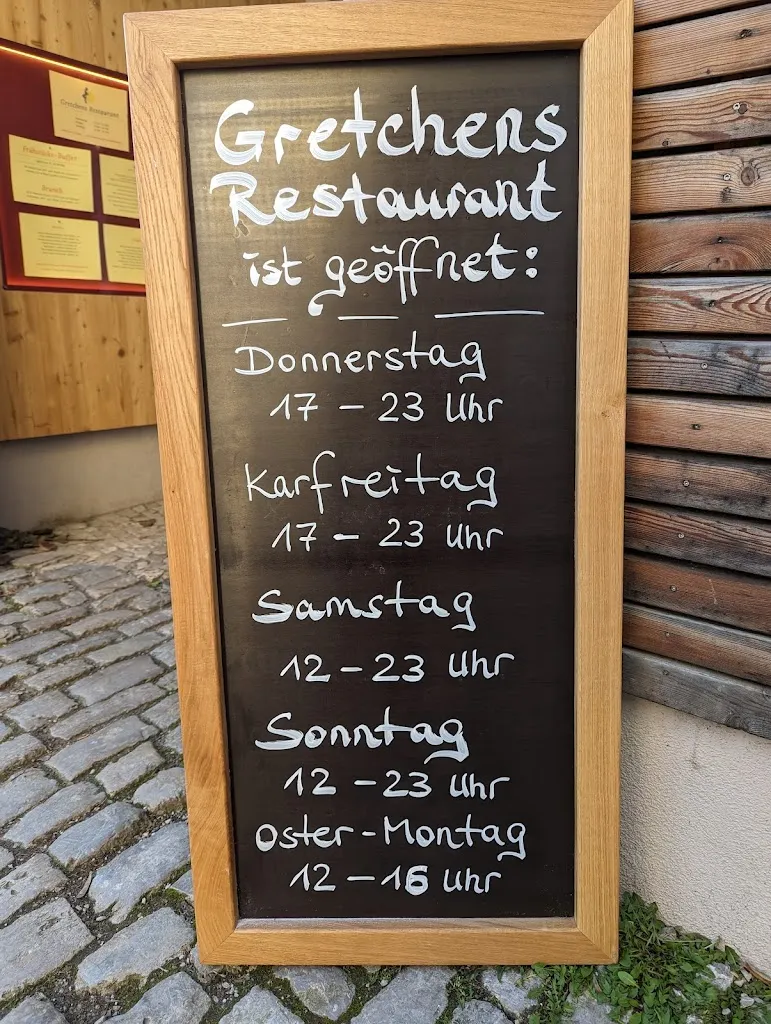 Gretchens
Restaurant
ist geöffnet:
Donnerstag
17 – 23 Uhr
Karfreitag
17 – 23 Uhr
Samstag
12 – 23 Uhr
Sonntag
12 – 23 Uhr
Oster-Montag
12 – 16 Uhr
Gretchens Restaurant
Frühstücks-Buffet
Brunch